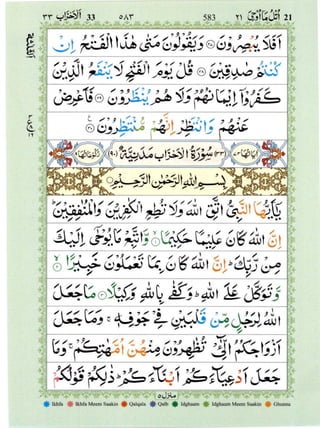 ٣٣ الاحزاب 33 ٥٨٣ 583 اتل مآ اوحی ٢١ 21
اَفَلَا يُبْصِرُوْنَ ۝ وَيَقُوْلُوْنَ مَتٰى هٰذَا الْفَتْحُ اِنْ
كُنْتُمْ صٰدِقِيْنَ ۝ قُلْ يَوْمَ الْفَتْحِ لَا يَنْفَعُ الَّذِيْنَ
كَفَرُوْٓا اِيْمَانُهُمْ وَلَا هُمْ يُنْظَرُوْنَ ۝ فَاَعْرِضْ
عَنْهُمْ وَانْتَظِرْ اِنَّهُمْ مُّنْتَظِرُوْنَ ۝
(٣٣) سُوْرَةُ الْاَحْزَابِ مَدَنِيَّةٌ (٩٠)
بِسْمِ اللّٰهِ الرَّحْمٰنِ الرَّحِيْمِ
يٰٓاَيُّهَا النَّبِيُّ اتَّقِ اللّٰهَ وَلَا تُطِعِ الْكٰفِرِيْنَ وَالْمُنٰفِقِيْنَ
اِنَّ اللّٰهَ كَانَ عَلِيْمًا حَكِيْمًا ۝ وَّاتَّبِعْ مَا يُوْحٰٓى اِلَيْكَ
مِنْ رَّبِّكَ اِنَّ اللّٰهَ كَانَ بِمَا تَعْمَلُوْنَ خَبِيْرًا ۝
وَّتَوَكَّلْ عَلَى اللّٰهِ وَكَفٰى بِاللّٰهِ وَكِيْلًا ۝ مَا جَعَلَ
اللّٰهُ لِرَجُلٍ مِّنْ قَلْبَيْنِ فِيْ جَوْفِهٖ وَمَا جَعَلَ
اَزْوَاجَكُمُ الّٰٓـِٔيْ تُظٰهِرُوْنَ مِنْهُنَّ اُمَّهٰتِكُمْ وَمَا
جَعَلَ اَدْعِيَآءَكُمْ اَبْنَآءَكُمْ ذٰلِكُمْ قَوْلُكُمْ
منزل ٥
Ikhfa Ikhfa Meem Saakin Qalqala Qalb Idghaam Idghaam Meem Saakin Ghunna